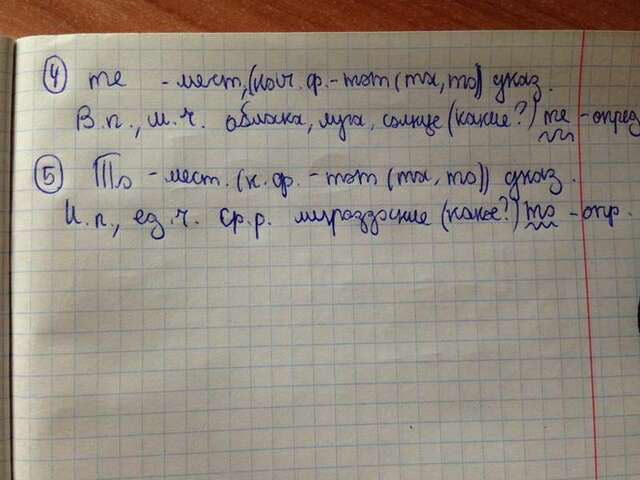 ④ те - мест, (нач. ф. - тот (та, то) указ.
В.п., м.ч. облака, луга, солнце (какие?) те - опред
⑤ То - мест. (н. ф. - тот (та, то)) указ.
И.п., ед.ч. ср.р. мироздание (какое?) то - опр.